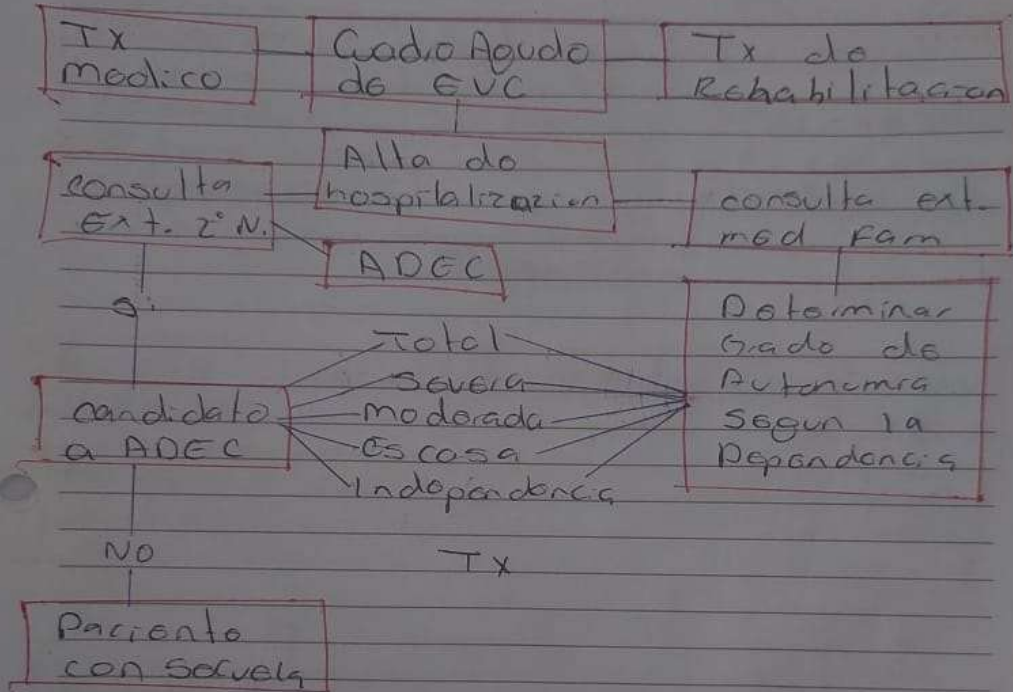 Tx
medico
Cuadro Agudo
de EVC
Tx de
Rehabilitacion
Alta de
hospitalizazion
consulta
Ext. 2° N.
consulta ext.
med Fam
ADEC
Si
Determinar
Grado de
Autonomia
Segun la
Dependencia
Total
Severa
moderada
Escasa
Independencia
candidato
a ADEC
NO
Tx
Paciente
con Secuela